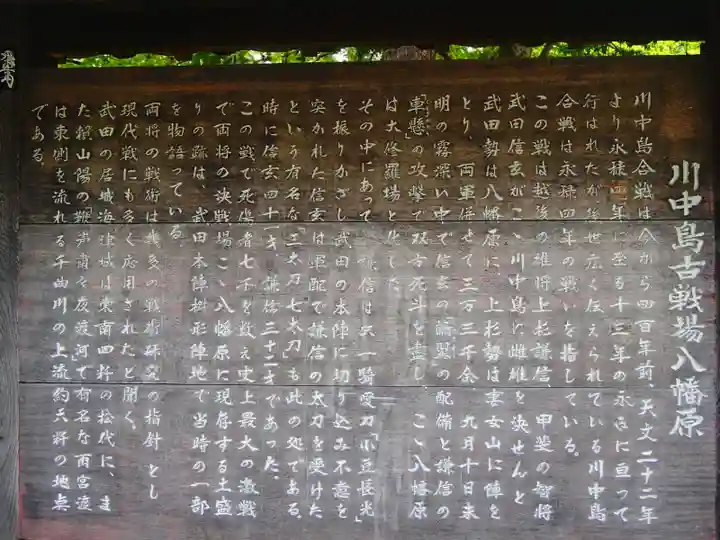 川中島古戦場八幡原
川中島合戦は今から四百年前、天文二十二年
より永禄四年に至る十三年の永きに亘って
行はれたが後世広く伝えられている川中島
合戦は永禄四年の戦いを指している。
この戦は越後の雄将上杉謙信、甲斐の智将
武田信玄がこゝ川中島に雌雄を決せんと
武田勢は八幡原に、上杉勢は妻女山に陣を
とり、両軍併せて三万三千余、九月十日未
明の霧深い中で信玄の鶴翼の配備と謙信の
車懸の攻撃で双方死斗を盡し、こゝ八幡原
は大修羅場と化した。
その中にあって、謙信は只一騎愛刀「小豆長光」
を振りかざし武田の本陣に切り込み不意を
突かれた信玄は軍配で謙信の太刀を受けた
という有名な「三太刀七太刀」も此の処である。
時に信玄四十一才、謙信三十二才であった。
この戦で死傷者七千を数え史上最大の激戦
で両将の決戦場こゝ八幡原に現存する土盛
りの跡は、武田本陣桝形陣地で当時の一部
を物語っている。
両将の戦術は幾多の戦術研究の指針とし
現代戦にも多く応用されたと聞く。
武田の居城海津城は東南四粁の松代に、ま
た頼山陽の鞭声粛々夜渡河で有名な雨宮渡
は東側を流れる千曲川の上流約六粁の地点
である。